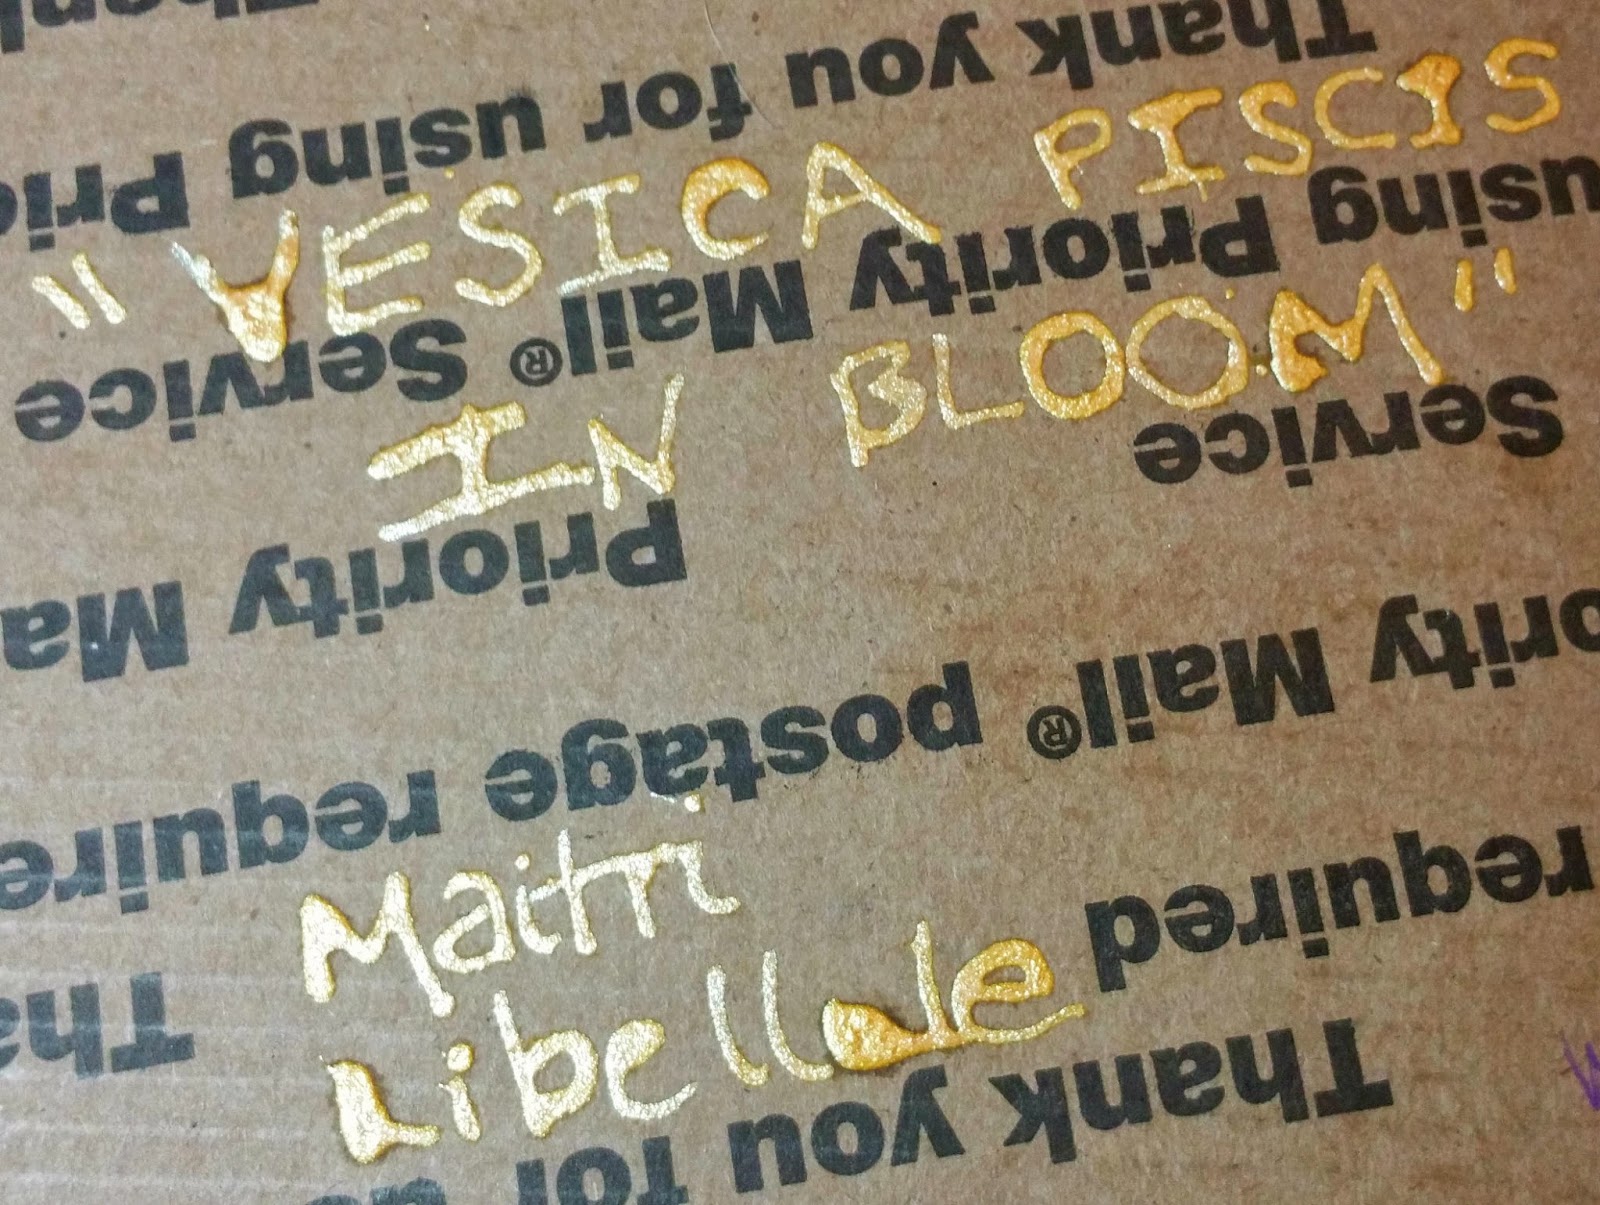 Thank
Thank you for using
Priority Mail® Service
"VESICA PISCIS
IN BLOOM"
using Priority
Service
Priority Ma
Priority Mail® postage require
required
Maitri
Libellule
Thank you for